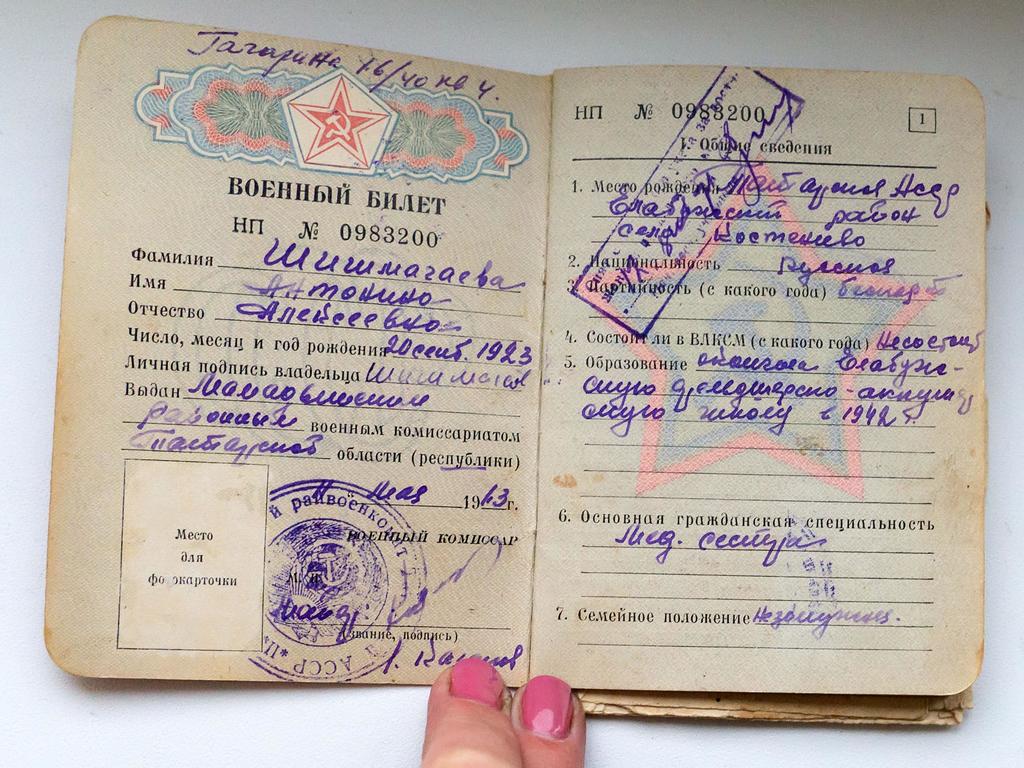 Гагарина 16/40 кв 4.
ВОЕННЫЙ БИЛЕТ
НП № 0983200
Фамилия Шишмагаева
Имя Антонина
Отчество Алексеевна
Число, месяц и год рождения 20 сент. 1923
Личная подпись владельца
Выдан Мамадышским
районным военным комиссариатом
Татарской области (республики)
мая 1963 г.
й райвоенкомат
ВОЕННЫЙ КОМИССАР
Место
для
фотокарточки
(звание, подпись)
АССР
НП № 0983200
1
I. Общие сведения
1. Место рождения Татарская АССР
Елабужский район
село Костенево
2. Национальность Русская
3. Партийность (с какого года) беспарт
4. Состоял ли в ВЛКСМ (с какого года) Несостоит
5. Образование окончила Елабуж-
скую фельдшерско-акушер
скую школу в 1942 г.
6. Основная гражданская специальность
Мед. сестра
7. Семейное положение Незамужняя.